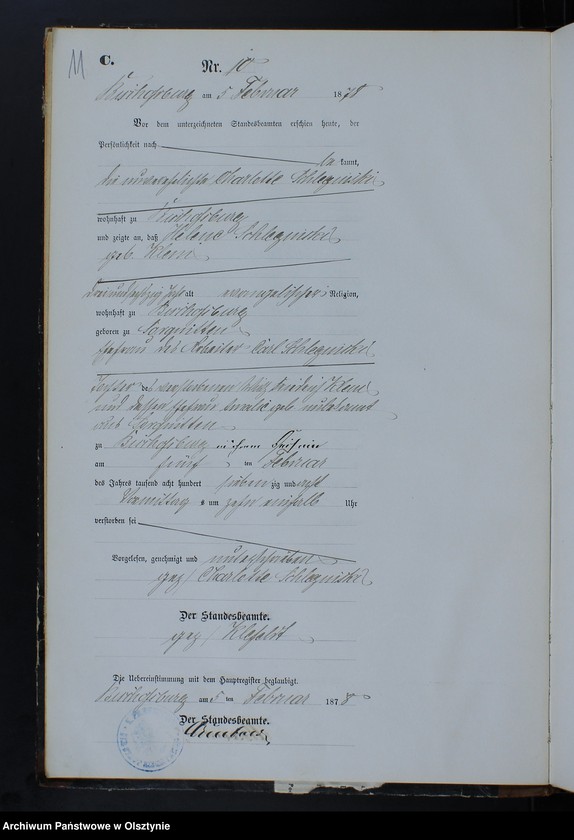 11
C.
Nr. 10
Bischofsburg am 5 Februar 1878
Vor dem unterzeichneten Standesbeamten erschien heute, der
Persönlichkeit nach
be kannt,
die unverehelichte Charlotte
wohnhaft zu Bischofsburg
und zeigte an, daß Helene
geb. Klein
alt evangelischer Religion,
wohnhaft zu Bischofsburg
geboren zu Sorquitten
Ehefrau des Arbeiter Carl
Tochter des verstorbenen Klein
und dessen Ehefrau geb. unbekannt
aus Sorquitten
zu Bischofsburg in ihrem
am fünf ten Februar
des Jahres tausend acht hundert sieben zig und acht
Vormittag s um zehn einhalb Uhr
verstorben sei
Vorgelesen, genehmigt und unterschrieben
gez. Charlotte
Der Standesbeamte.
gez.
Die Uebereinstimmung mit dem Hauptregister beglaubigt.
Bischofsburg am 5 ten Februar 1878
Der Standesbeamte.
Archiwum Państwowe w Olsztynie